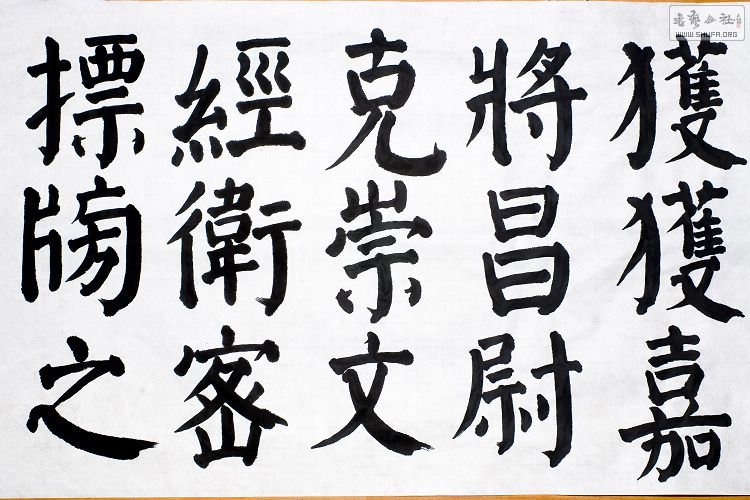 獲獲嘉
將昌尉
克崇文
經衛密
摽牓之
書藝公社
WWW.SHUFA.ORG